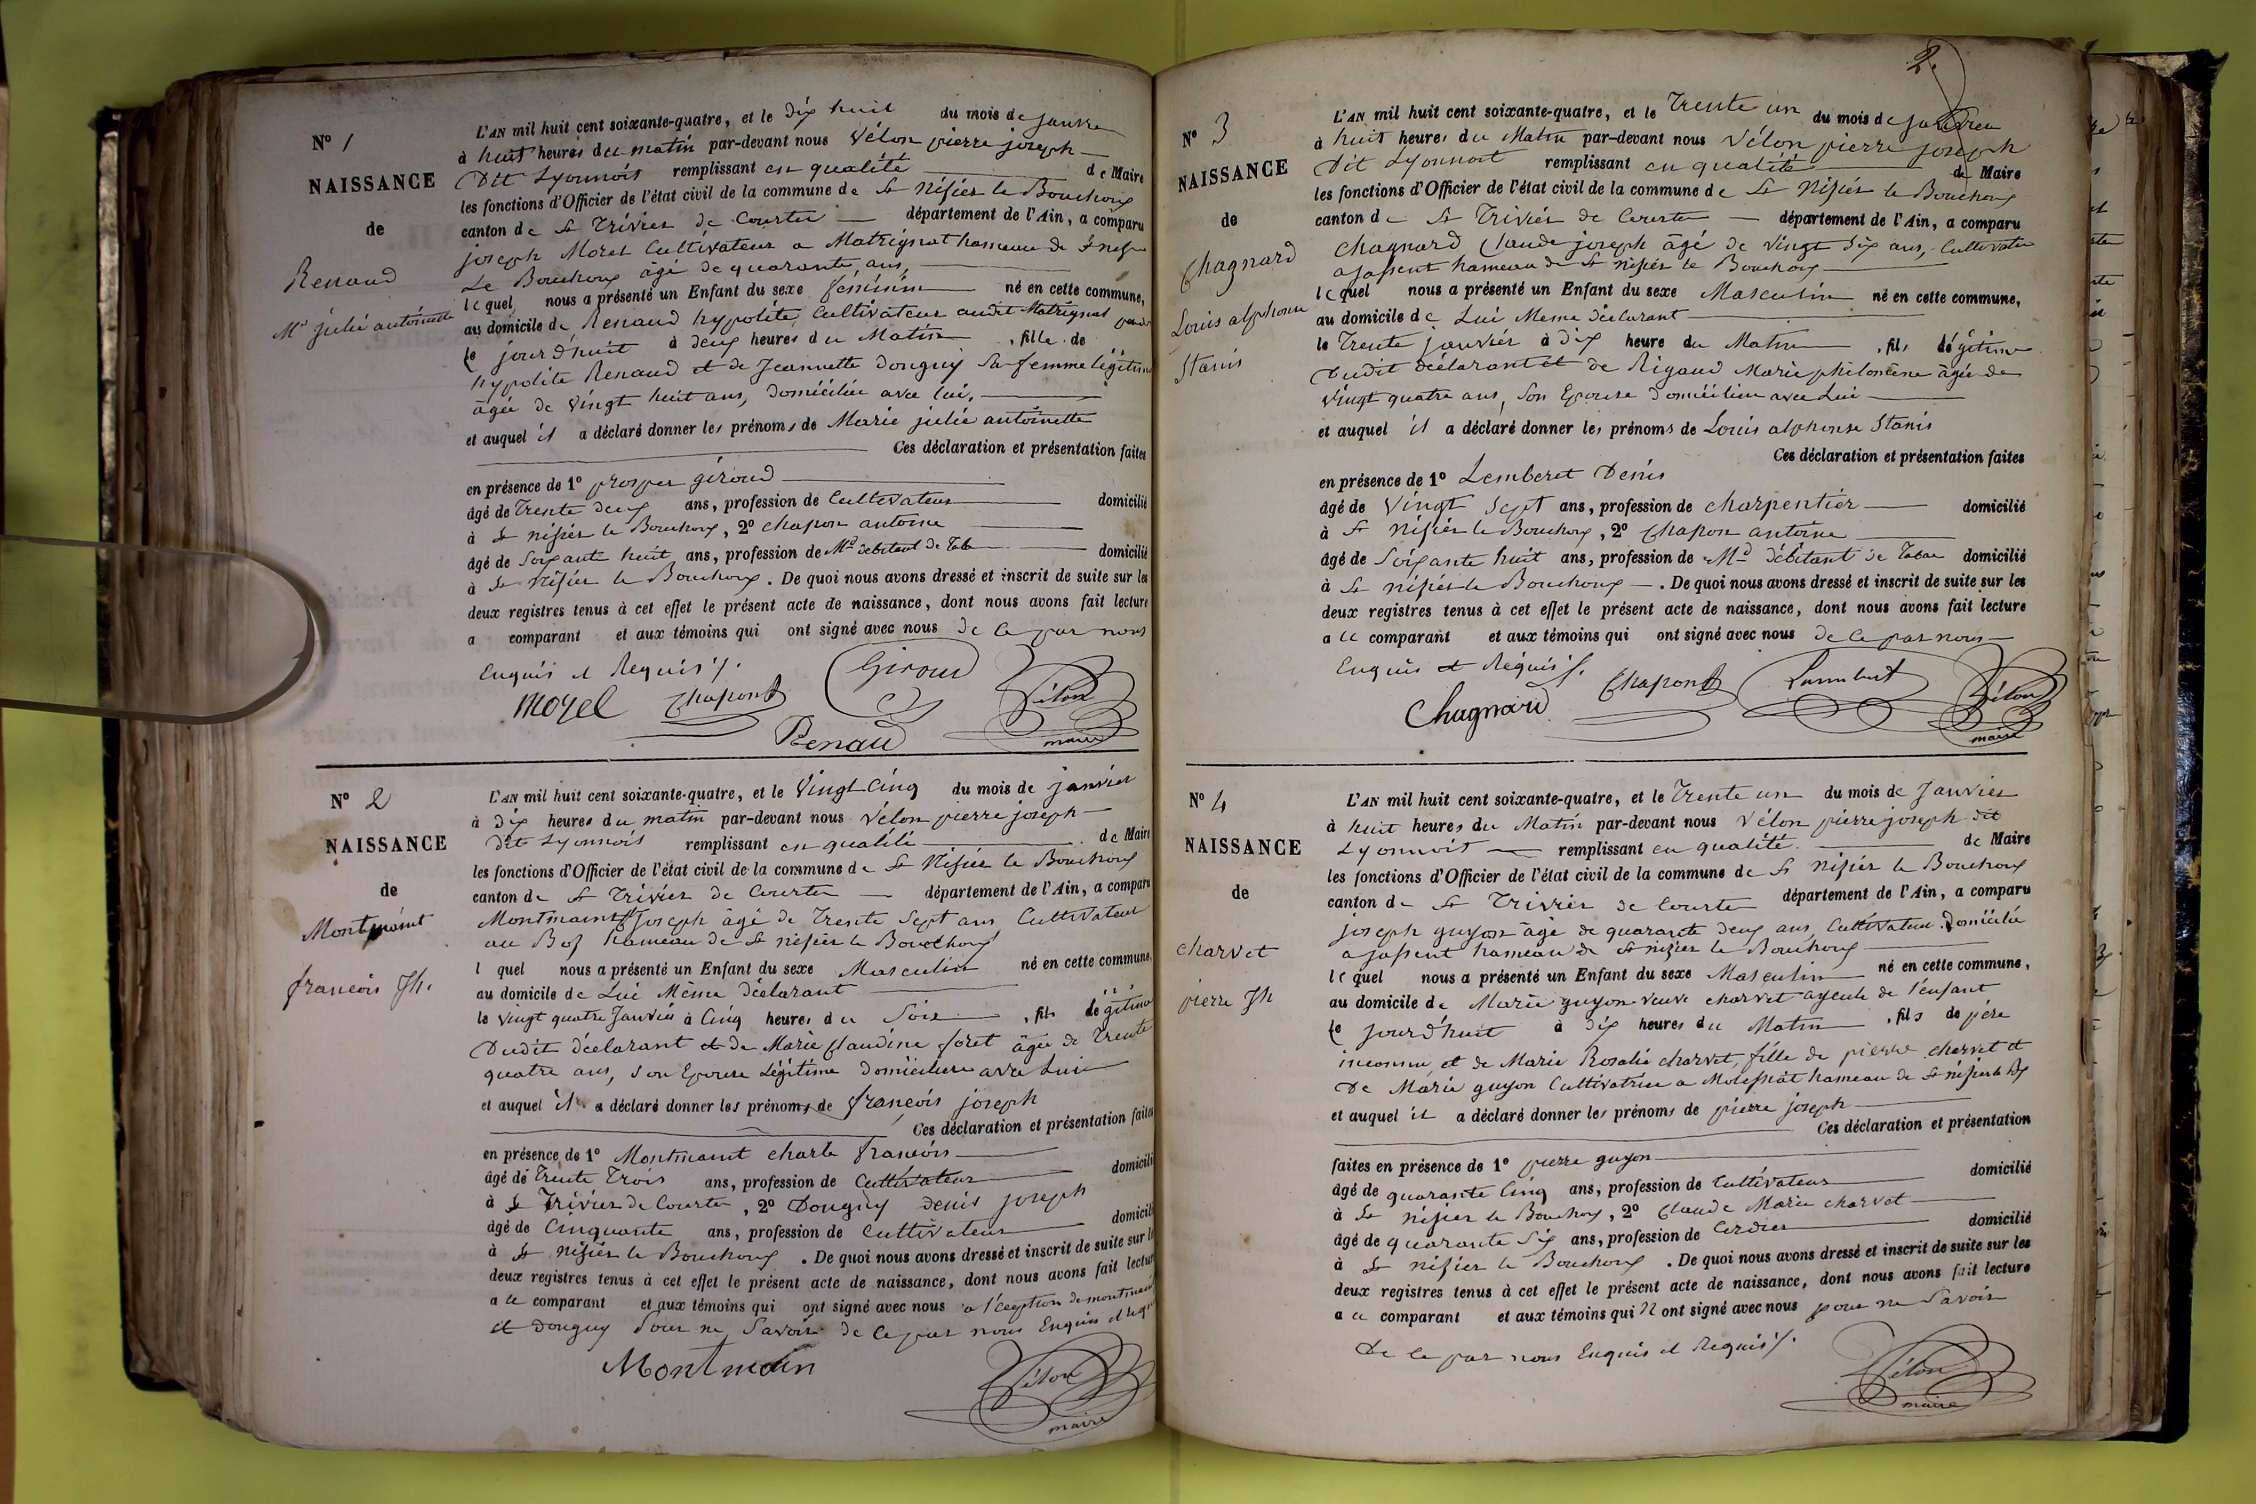 N° 1
NAISSANCE
de
Renaud
Mie julie antoinette
L'AN mil huit cent soixante-quatre, et le dix huit du mois de janvier
à huit heures du matin par-devant nous Vélon pierre joseph
Dit Lyonnois remplissant en qualité de Maire
les fonctions d'Officier de l'état civil de la commune de St Nisier le Bouchoux
canton de St Trivier de Courtes département de l'Ain, a comparu
joseph Morel Cultivateur a Matrignat hameau de St nisier
Le Bouchoux âgé de quarante ans,
lequel nous a présenté un Enfant du sexe féminin né en cette commune,
au domicile de Renaud hypolite, Cultivateur audit Matrignat
le jour d'huit à deux heures du Matin, fille de
hypolite Renaud et de Jeannette Donguy Sa femme légitime
âgée de vingt huit ans, domiciliée avec lui,
et auquel il a déclaré donner les prénoms de Marie julie antoinette
Ces déclaration et présentation faites
en présence de 1° prosper giroud
âgé de Trente deux ans, profession de Cultivateur domicilié
à St nisier le Bouchoux, 2° chapon antoine
âgé de Soixante huit ans, profession de Md débitant de Tab domicilié
à St Nisier le Bouchoux. De quoi nous avons dressé et inscrit de suite sur les
deux registres tenus à cet effet le présent acte de naissance, dont nous avons fait lecture
a comparant et aux témoins qui ont signé avec nous de ce par nous
Enquis et Requis ./.
Morel Chapon Giroud Vélon
Renaud maire
N° 2
NAISSANCE
de
Montmaint
francois Jh.
L'AN mil huit cent soixante-quatre, et le Vingt Cinq du mois de janvier
à dix heures du matin par-devant nous Vélon pierre joseph
Dit Lyonnois remplissant en qualité de Maire
les fonctions d'Officier de l'état civil de la commune de St Nisier le Bouchoux
canton de St Trivier de Courtes département de l'Ain, a comparu
Montmaint Joseph âgé de Trente Sept ans Cultivateur
au Boz hameau de St nisier le Bouchoux
l quel nous a présenté un Enfant du sexe Masculin né en cette commune,
au domicile de Lui Même déclarant
le vingt quatre Janvier à Cinq heures du Soir, fils légitime
Dudit déclarant et de Marie Claudine foret âgée de Trente
quatre ans, son Epouse Légitime domiciliée avec Lui
et auquel il a déclaré donner les prénoms de françois joseph
Ces déclaration et présentation faites
en présence de 1° Montmaint charle françois
âgé de Trente Trois ans, profession de Cultivateur domicilié
à St Trivier de Courtes, 2° Donguy denis joseph
âgé de Cinquante ans, profession de Cultivateur domicilié
à St nisier le Bouchoux. De quoi nous avons dressé et inscrit de suite sur les
deux registres tenus à cet effet le présent acte de naissance, dont nous avons fait lecture
a ce comparant et aux témoins qui ont signé avec nous a l'éception de montmaint
et donguy Pour ne Savoir de ce par nous Enquis et requis
Montmain Vélon
maire
2.
N° 3
NAISSANCE
de
Chagnard
Louis alphonse
Stanis
L'AN mil huit cent soixante-quatre, et le Trente un du mois de Janvier
à huit heures du Matin par-devant nous Vélon pierre joseph
Dit Lyonnoit remplissant en qualité de Maire
les fonctions d'Officier de l'état civil de la commune de St Nisier le Bouchoux
canton de St Trivier de Courtes département de l'Ain, a comparu
Chagnard Claude joseph âgé de Vingt dix ans, Cultivateur
a jassent hameau de St nisier le Bouchoux
lequel nous a présenté un Enfant du sexe Masculin né en cette commune,
au domicile de Lui Meme déclarant
le Trente janvier à dix heure du Matin, fils légitime
Dudit déclarant et de Rigaud Marie philomène âgée de
vingt quatre ans, Son Epouse domiciliée avec Lui
et auquel il a déclaré donner les prénoms de Louis alphonse Stanis
Ces déclaration et présentation faites
en présence de 1° Lemberet Denis
âgé de Vingt Sept ans, profession de charpentier domicilié
à St Nisier le Bouchoux, 2° Chapon antoine
âgé de Soixante huit ans, profession de Md débitant de Tabac domicilié
à St nisier le Bouchoux. De quoi nous avons dressé et inscrit de suite sur les
deux registres tenus à cet effet le présent acte de naissance, dont nous avons fait lecture
a ce comparant et aux témoins qui ont signé avec nous de ce par nous
Enquis et Réquis ./.
Chagnard Chapon Lambert Vélon
maire
N° 4
NAISSANCE
de
charvet
pierre Jh
L'AN mil huit cent soixante-quatre, et le Trente un du mois de Janvier
à huit heures du Matin par-devant nous Vélon pierre joseph dit
Lyonnoit remplissant en qualité de Maire
les fonctions d'Officier de l'état civil de la commune de St Nisier le Bouchoux
canton de St Trivier de Courtes département de l'Ain, a comparu
joseph guyon âgé de quarante deux ans, Cultivateur Domicilié
a jassent hameau de St nizier le Bouchoux
lequel nous a présenté un Enfant du sexe Masculin né en cette commune,
au domicile de Marie guyon veuve charvet ayeule de l'enfant
le jour d'huit à dix heures du Matin, fils de père
inconnu, et de Marie Rosalie charvet, fille de pierre charvet et
De Marie guyon Cultivatrice a Molefnat hameau de St nisier le Bx
et auquel il a déclaré donner les prénoms de pierre joseph
Ces déclaration et présentation
faites en présence de 1° pierre guyon
âgé de quarante Cinq ans, profession de Cultivateur domicilié
à St nisier le Bouchoux, 2° Claude Marie charvet
âgé de quarante Six ans, profession de Cordier domicilié
à St nisier le Bouchoux. De quoi nous avons dressé et inscrit de suite sur les
deux registres tenus à cet effet le présent acte de naissance, dont nous avons fait lecture
a ce comparant et aux témoins qui n ont signé avec nous pour ne Savoir
De ce par nous Enquis et Requis ./.
Vélon
maire